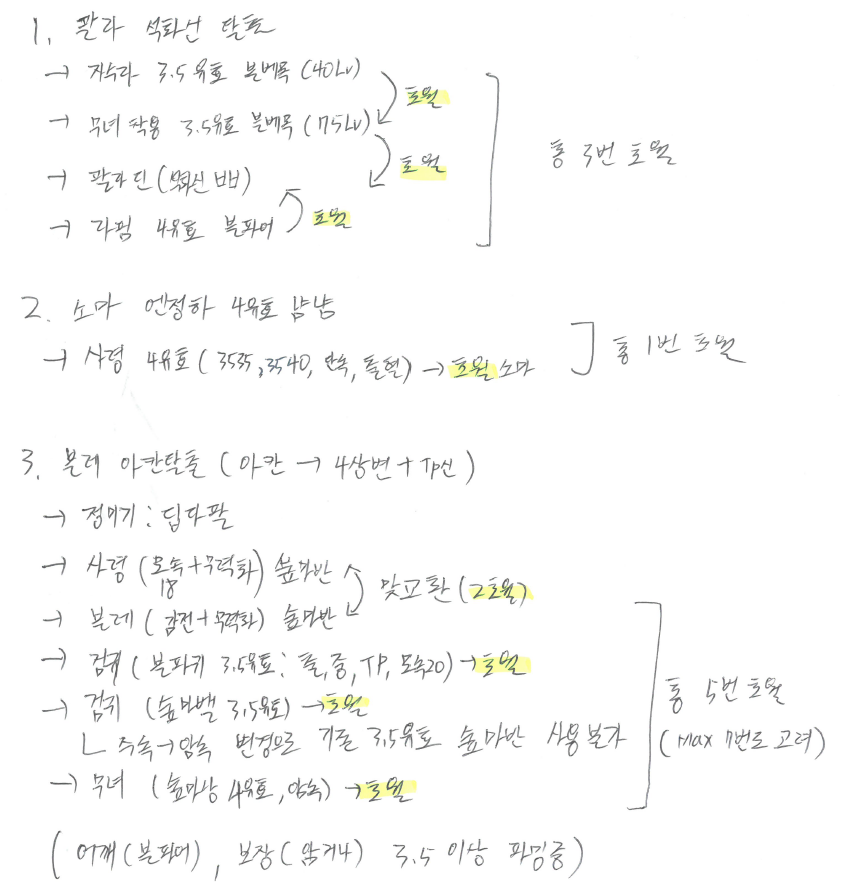 1. 팔라 석화선 탈출
→ 자수라 3.5유효 분베목 (40Lv)
초월
→ 무녀 착용 3.5유효 분베목 (75Lv)
초월
→ 팔라딘
→ 라핌 4유효 분파어
초월
총 3번 초월
2. 소마 엔정하 4유효 냠냠
→ 사령 4유효 (3535, 3540, 암속, 출혈) → 초월 소마
총 1번 초월
3. 블레 아칸탈출 (아칸 → 4상변 + TP신)
→ 정마기 : 딥다팔
→ 사령 (모속+무력화) 숲마반
18
맞교환 (2초월)
→ 블레 (감전+무력화) 숲마반
→ 검귀 (분파귀 3.5유효: 출, 중, TP, 모속20) → 초월
→ 검귀 (숲마벨 3.5유효) → 초월
ㄴ 수속→암속 변경으로 기존 3.5유효 숲마반 사용불가
→ 무녀 (숲마상 4유효, 암속) → 초월
총 5번 초월
(Max 7번도 고려)
(어깨(분파어), 보장(암거나) 3.5 이상 파밍중)